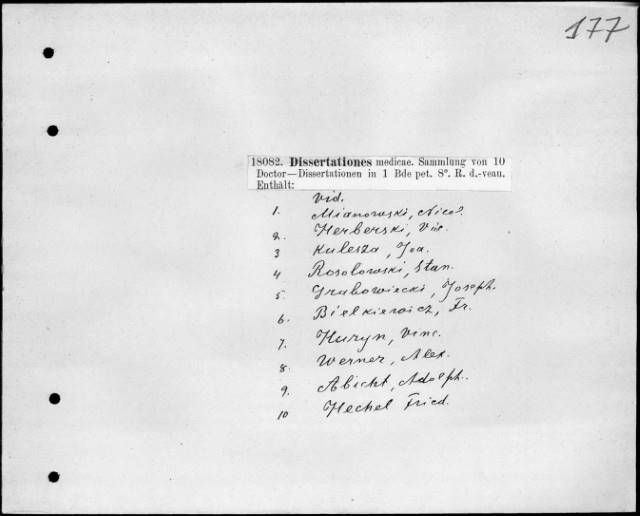 177
18082. Dissertationes medicae. Sammlung von 10
Doctor—Dissertationen in 1 Bde pet. 8°. R. d.-veau.
Enthält:
Vid.
1. Mianowski, Nicol.
2. Herberski, Vin.
3 Kulesza, Joa.
4 Rosolowski, Stan.
5. Grabowiecki, Joseph.
6. Bielkiewicz, Fr.
7. Huryn, Vinc.
8. Werner, Alex.
9. Abicht, Adolph.
10 Hechel Fried.